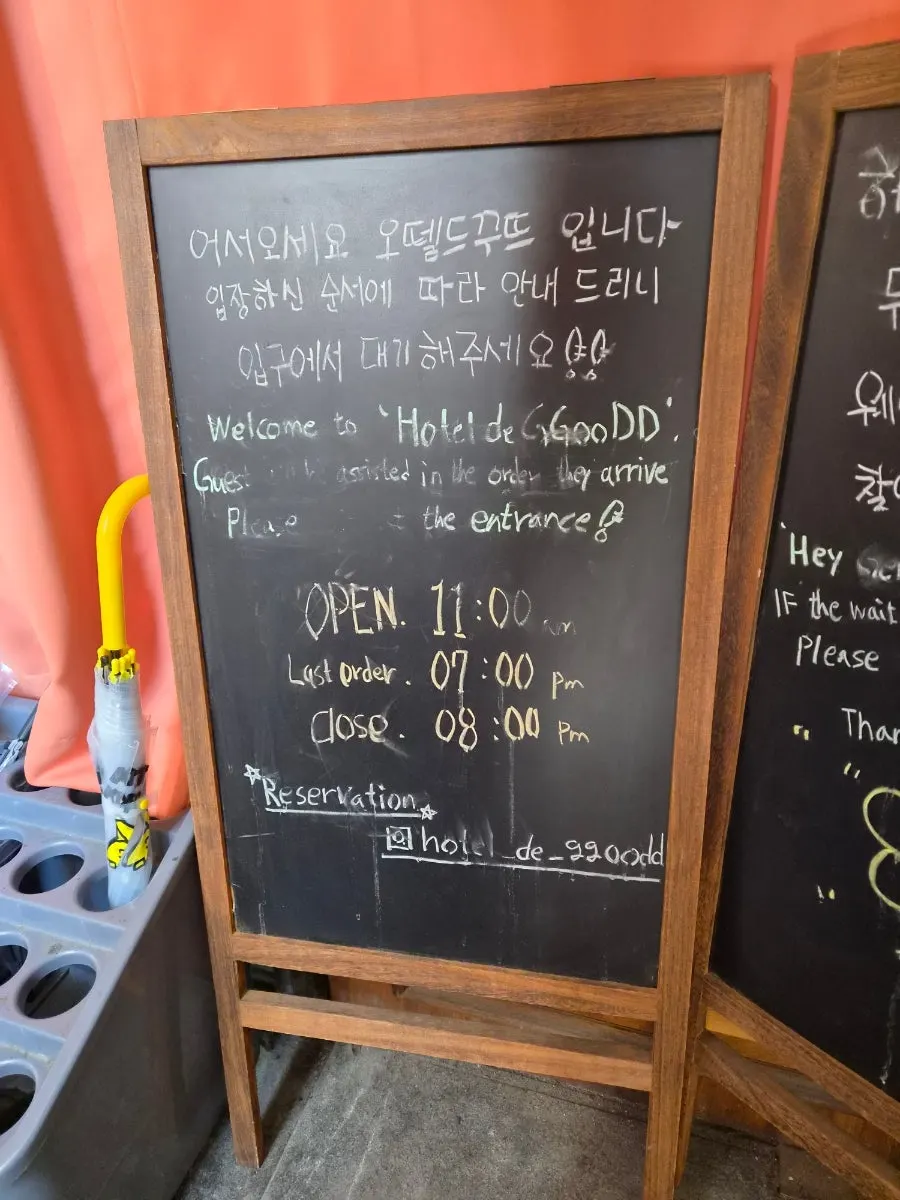 어서오세요 오뗄드꾸뜨 입니다
입장하신 순서에 따라 안내 드리니
입구에서 대기해주세요
Welcome to 'Hotel de GGooDD'.
Guest assisted in the order they arrive
Please the entrance
OPEN. 11:00 am
Last order. 07:00 pm
Close. 08:00 pm
Reservation
hotel_de_ggoodd
Hey
IF the wait
Please